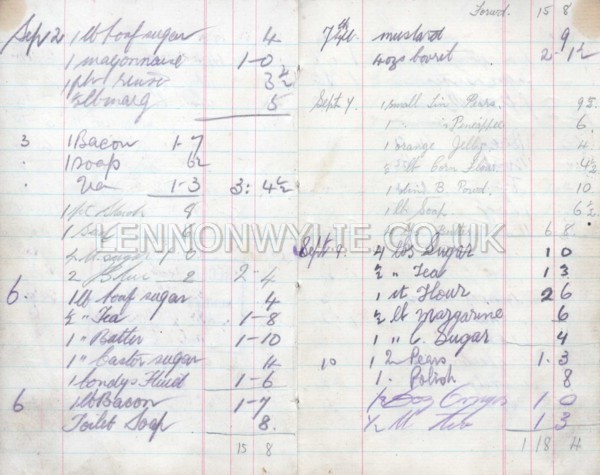 Sep 2 1 lb loaf sugar 4
1 mayonnaise 1-0
1 pkt rinso 3½
½ lb marg 5
3 1 Bacon 1-7
" 1 Soap 6½
" Tea 1-3 3:4½
1 pt 9
1 6
sugar 1 0
2 Blue 2 2-4
6. 1 lb loaf sugar 4
½ " Tea 1-8
1 " Butter 1-10
1 " Castor sugar 4
1 Condys Fluid 1-6
6 1 lb Bacon 1-7
Toilet Soap 8.
15 8
Forwd. 15 8
7th Sept. mustard 9
4 ozs bovril 2-1½
Sept. 7. 1 small tin Pears. 9½
1 " " Pineapple 6.
1 Orange Jelly 4
½ lb Corn Flour 4½
1 B. Powd. 10
1 lb Soap 6½
6 8
LENNONWYLIE.CO.UK
Sept 9. 4 lbs Sugar 1 0
½ " Tea 1 3
1 st Flour 2 6
½ lb Margarine 6
1 " C. Sugar 4
10 1 2 Pears 1.3
1. Polish 8
½ Doz 1 0
½ 1 3
1 18 4